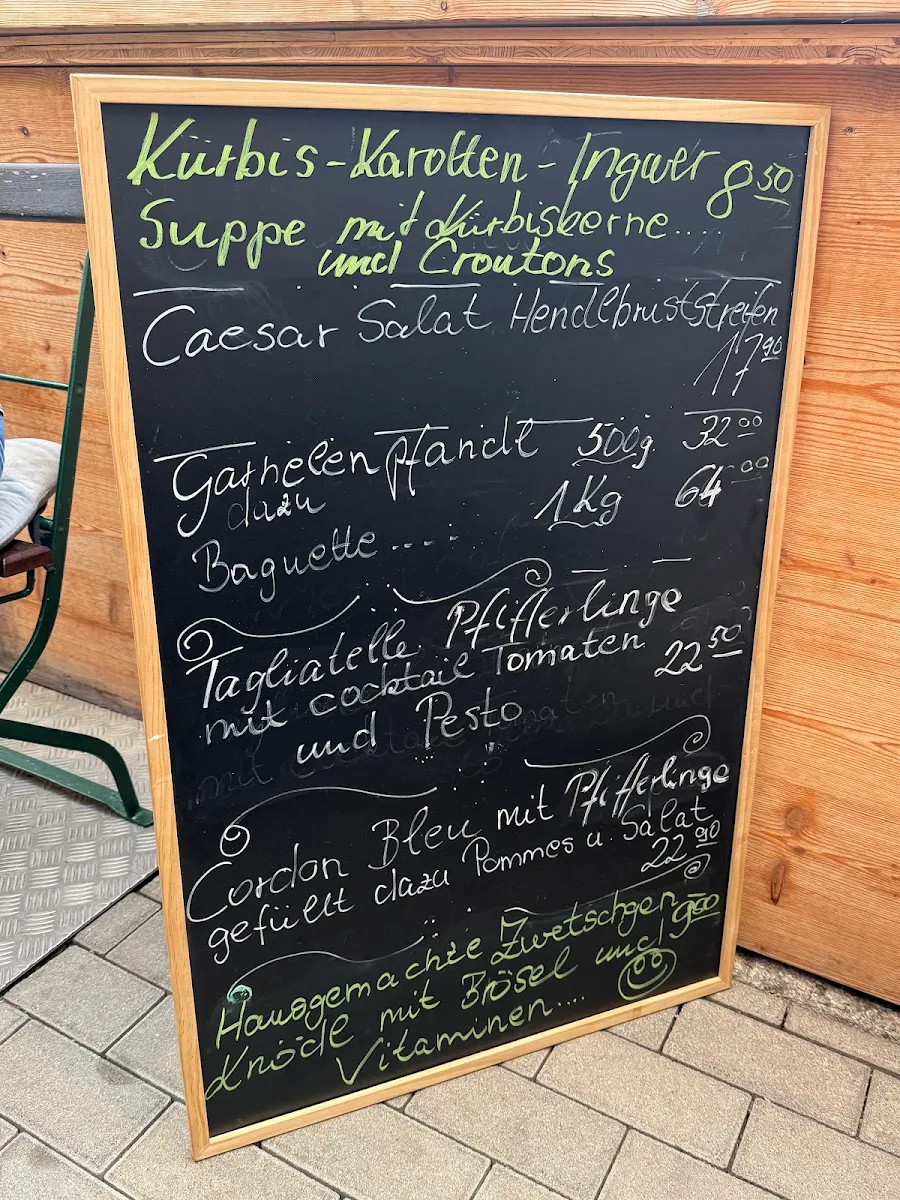 Kürbis-Karotten-Ingwer 8,50
Suppe mit Kürbiskerne....
und Croutons
Caesar Salat Hendlbruststreifen
17 90
Garnelen pfandl 500g 32 00
dazu 1 Kg 64 00
Baguette....
Tagliatelle Pfifferlinge
mit cocktail Tomaten 22 50
und Pesto
Cordon Bleu mit Pfifferlinge
gefüllt dazu Pommes u. Salat
22 90
Hausgemachte Zwetschgen 9 00
Knödl mit Brösel und
Vitaminen....